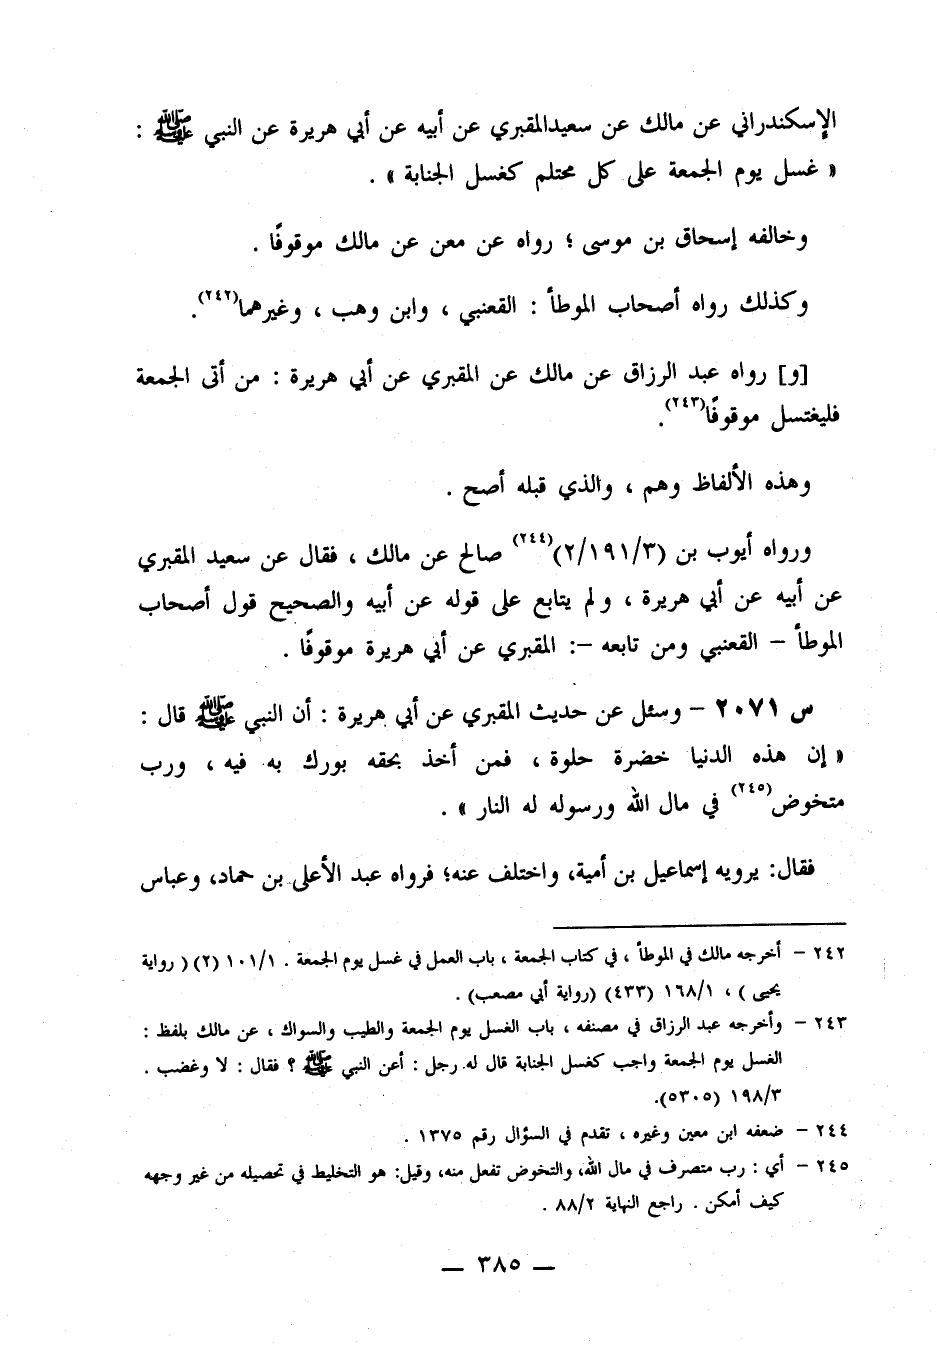 الإسكندراني عن مالك عن سعيدالمقبري عن أبيه عن أبي هريرة عن النبي ﷺ :
« غسل يوم الجمعة على كل محتلم كغسل الجنابة » .
وخالفه إسحاق بن موسى ؛ رواه عن معن عن مالك موقوفًا .
وكذلك رواه أصحاب الموطأ : القعنبي ، وابن وهب ، وغيرهما(٢٤٢).
[و] رواه عبد الرزاق عن مالك عن المقبري عن أبي هريرة : من أتى الجمعة
فليغتسل موقوفًا(٢٤٣).
وهذه الألفاظ وهم ، والذي قبله أصح .
ورواه أيوب بن (٢/١٩١/٣)(٢٤٤) صالح عن مالك ، فقال عن سعيد المقبري
عن أبيه عن أبي هريرة ، ولم يتابع على قوله عن أبيه والصحيح قول أصحاب
الموطأ – القعنبي ومن تابعه –: المقبري عن أبي هريرة موقوفًا .
س ٢٠٧١ – وسئل عن حديث المقبري عن أبي هريرة : أن النبي ﷺ قال :
« إن هذه الدنيا خضرة حلوة ، فمن أخذ بحقه بورك به فيه ، ورب
متخوض(٢٤٥) في مال الله ورسوله له النار » .
فقال: يرويه إسماعيل بن أمية، واختلف عنه؛ فرواه عبد الأعلى بن حماد، وعباس
٢٤٢ – أخرجه مالك في الموطأ ، في كتاب الجمعة ، باب العمل في غسل يوم الجمعة . ١٠١/١ (٢) ( رواية
يحيى ) ، ١٦٨/١ (٤٣٣) (رواية أبي مصعب) .
٢٤٣ – وأخرجه عبد الرزاق في مصنفه ، باب الغسل يوم الجمعة والطيب والسواك ، عن مالك بلفظ :
الغسل يوم الجمعة واجب كغسل الجنابة قال له رجل : أعن النبي ﷺ ؟ فقال : لا وغضب .
١٩٨/٣ (٥٣٠٥).
٢٤٤ – ضعفه ابن معين وغيره ، تقدم في السؤال رقم ١٣٧٥ .
٢٤٥ – أي : رب متصرف في مال الله، والتخوض تفعل منه، وقيل: هو التخليط في تحصيله من غير وجهه
كيف أمكن . راجع النهاية ٨٨/٢ .
— ٣٨٥ —